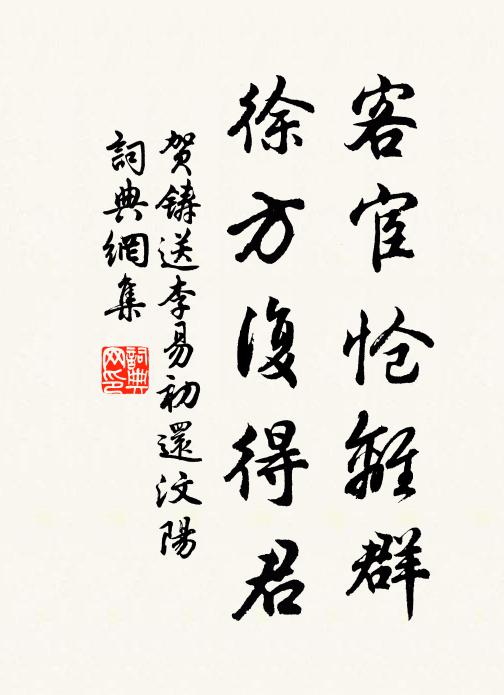 客宦怆離群
徐方復得君
贺鑄送李易初還汶陽
詞典網集
詞典网印